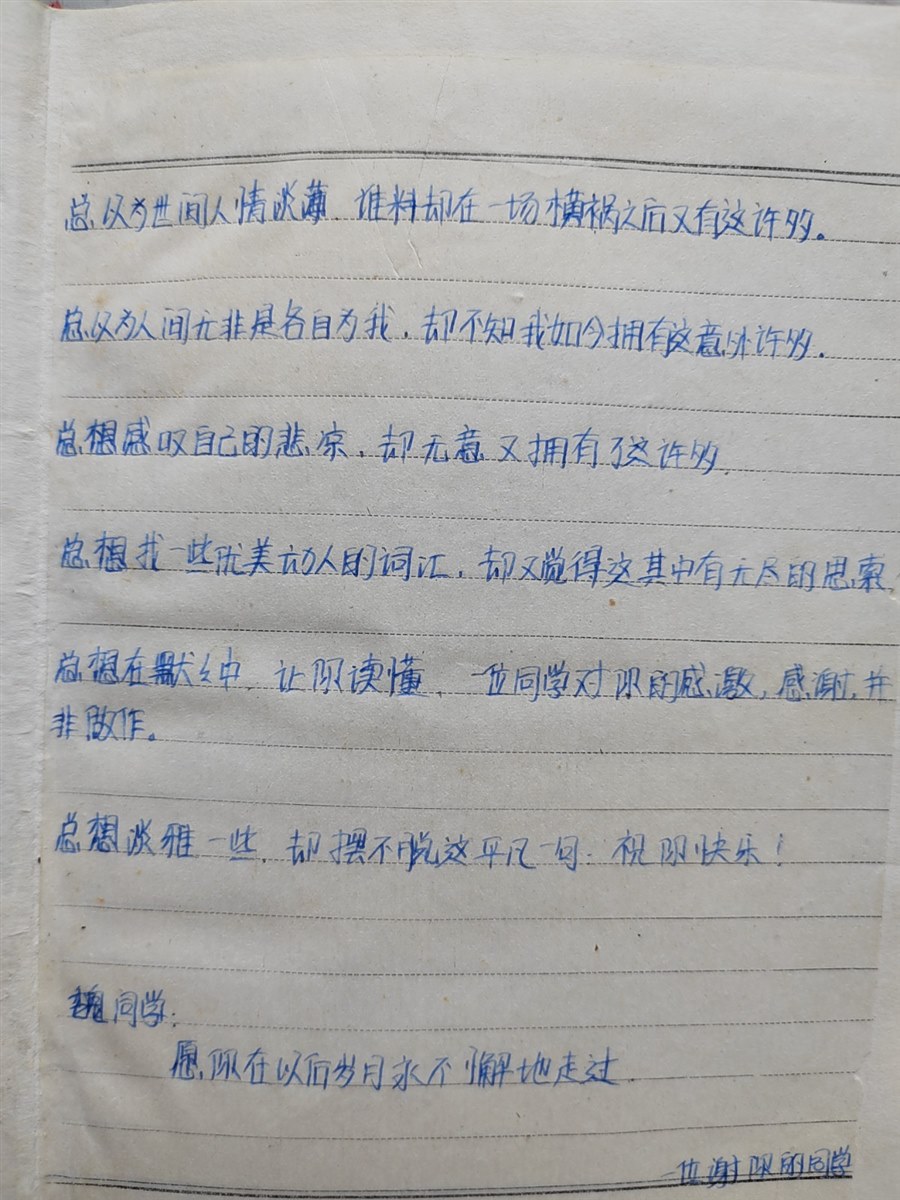 总以为世间人情淡薄、谁料却在一场横祸之后又有这许多。
总以为人间无非是各自为我，却不知我如今拥有这意外许多。
总想感叹自己的悲凉，却无意又拥有了这许多，
总想找一些优美动人的词汇，却又觉得这其中有无尽的思索
总想在默々中，让你读懂，一位同学对你的感激，感谢，并
非做作。
总想淡雅一些，却摆不脱这平凡一句：祝你快乐！
同学：
愿你在以后岁月永不懈地走过
一位谢你的同学